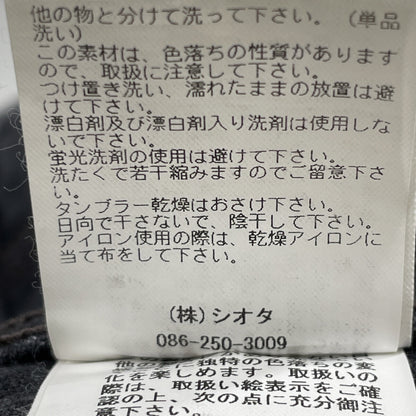 他の物と分けて洗って下さい。(単品
洗い)
この素材は、色落ちの性質があります
ので、取扱に注意して下さい。
つけ置き洗い、濡れたままの放置は避
けて下さい。
漂白剤及び漂白剤入り洗剤は使用しな
いで下さい。
蛍光洗剤の使用は避けて下さい。
洗たくで若干縮みますのでご留意下さ
い。
タンブラー乾燥はおさけ下さい。
日向で干さないで、陰干して下さい。
アイロン使用の際は、乾燥アイロンに
当て布をして下さい。
(株)シオタ
086-250-3009
独特の色落ちの
化を楽しめます。取扱いの
際は、取扱い絵表示をご確
認の上、次の点に充分御注
意下さい。